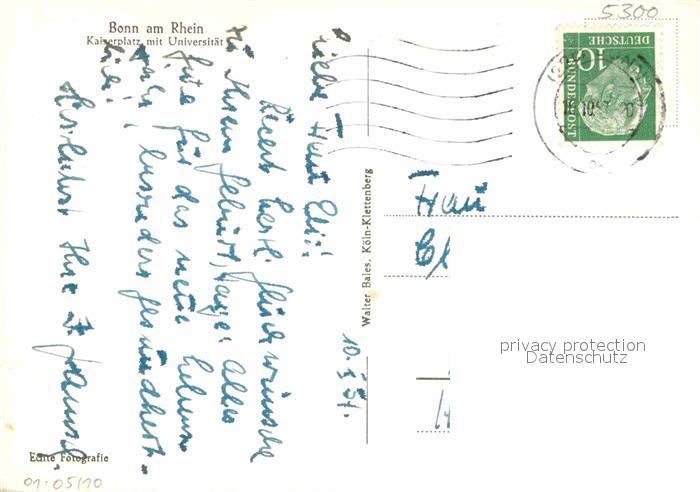 Bonn am Rhein
Kaiserplatz mit Universität
5300
10
DEUTSCHE
BUNDESPOST
10. 57.
Liebe Frau
Recht herzl. Glückwünsche
zu Ihrem Geburtstage! Alles
Gute für das neue Lebens-
jahr, besonders Gesundheit.
Herzlichst Ihre
Walter Bales, Köln-Klettenberg
Frau
privacy protection
Datenschutz
Echte Fotografie
01.05/10